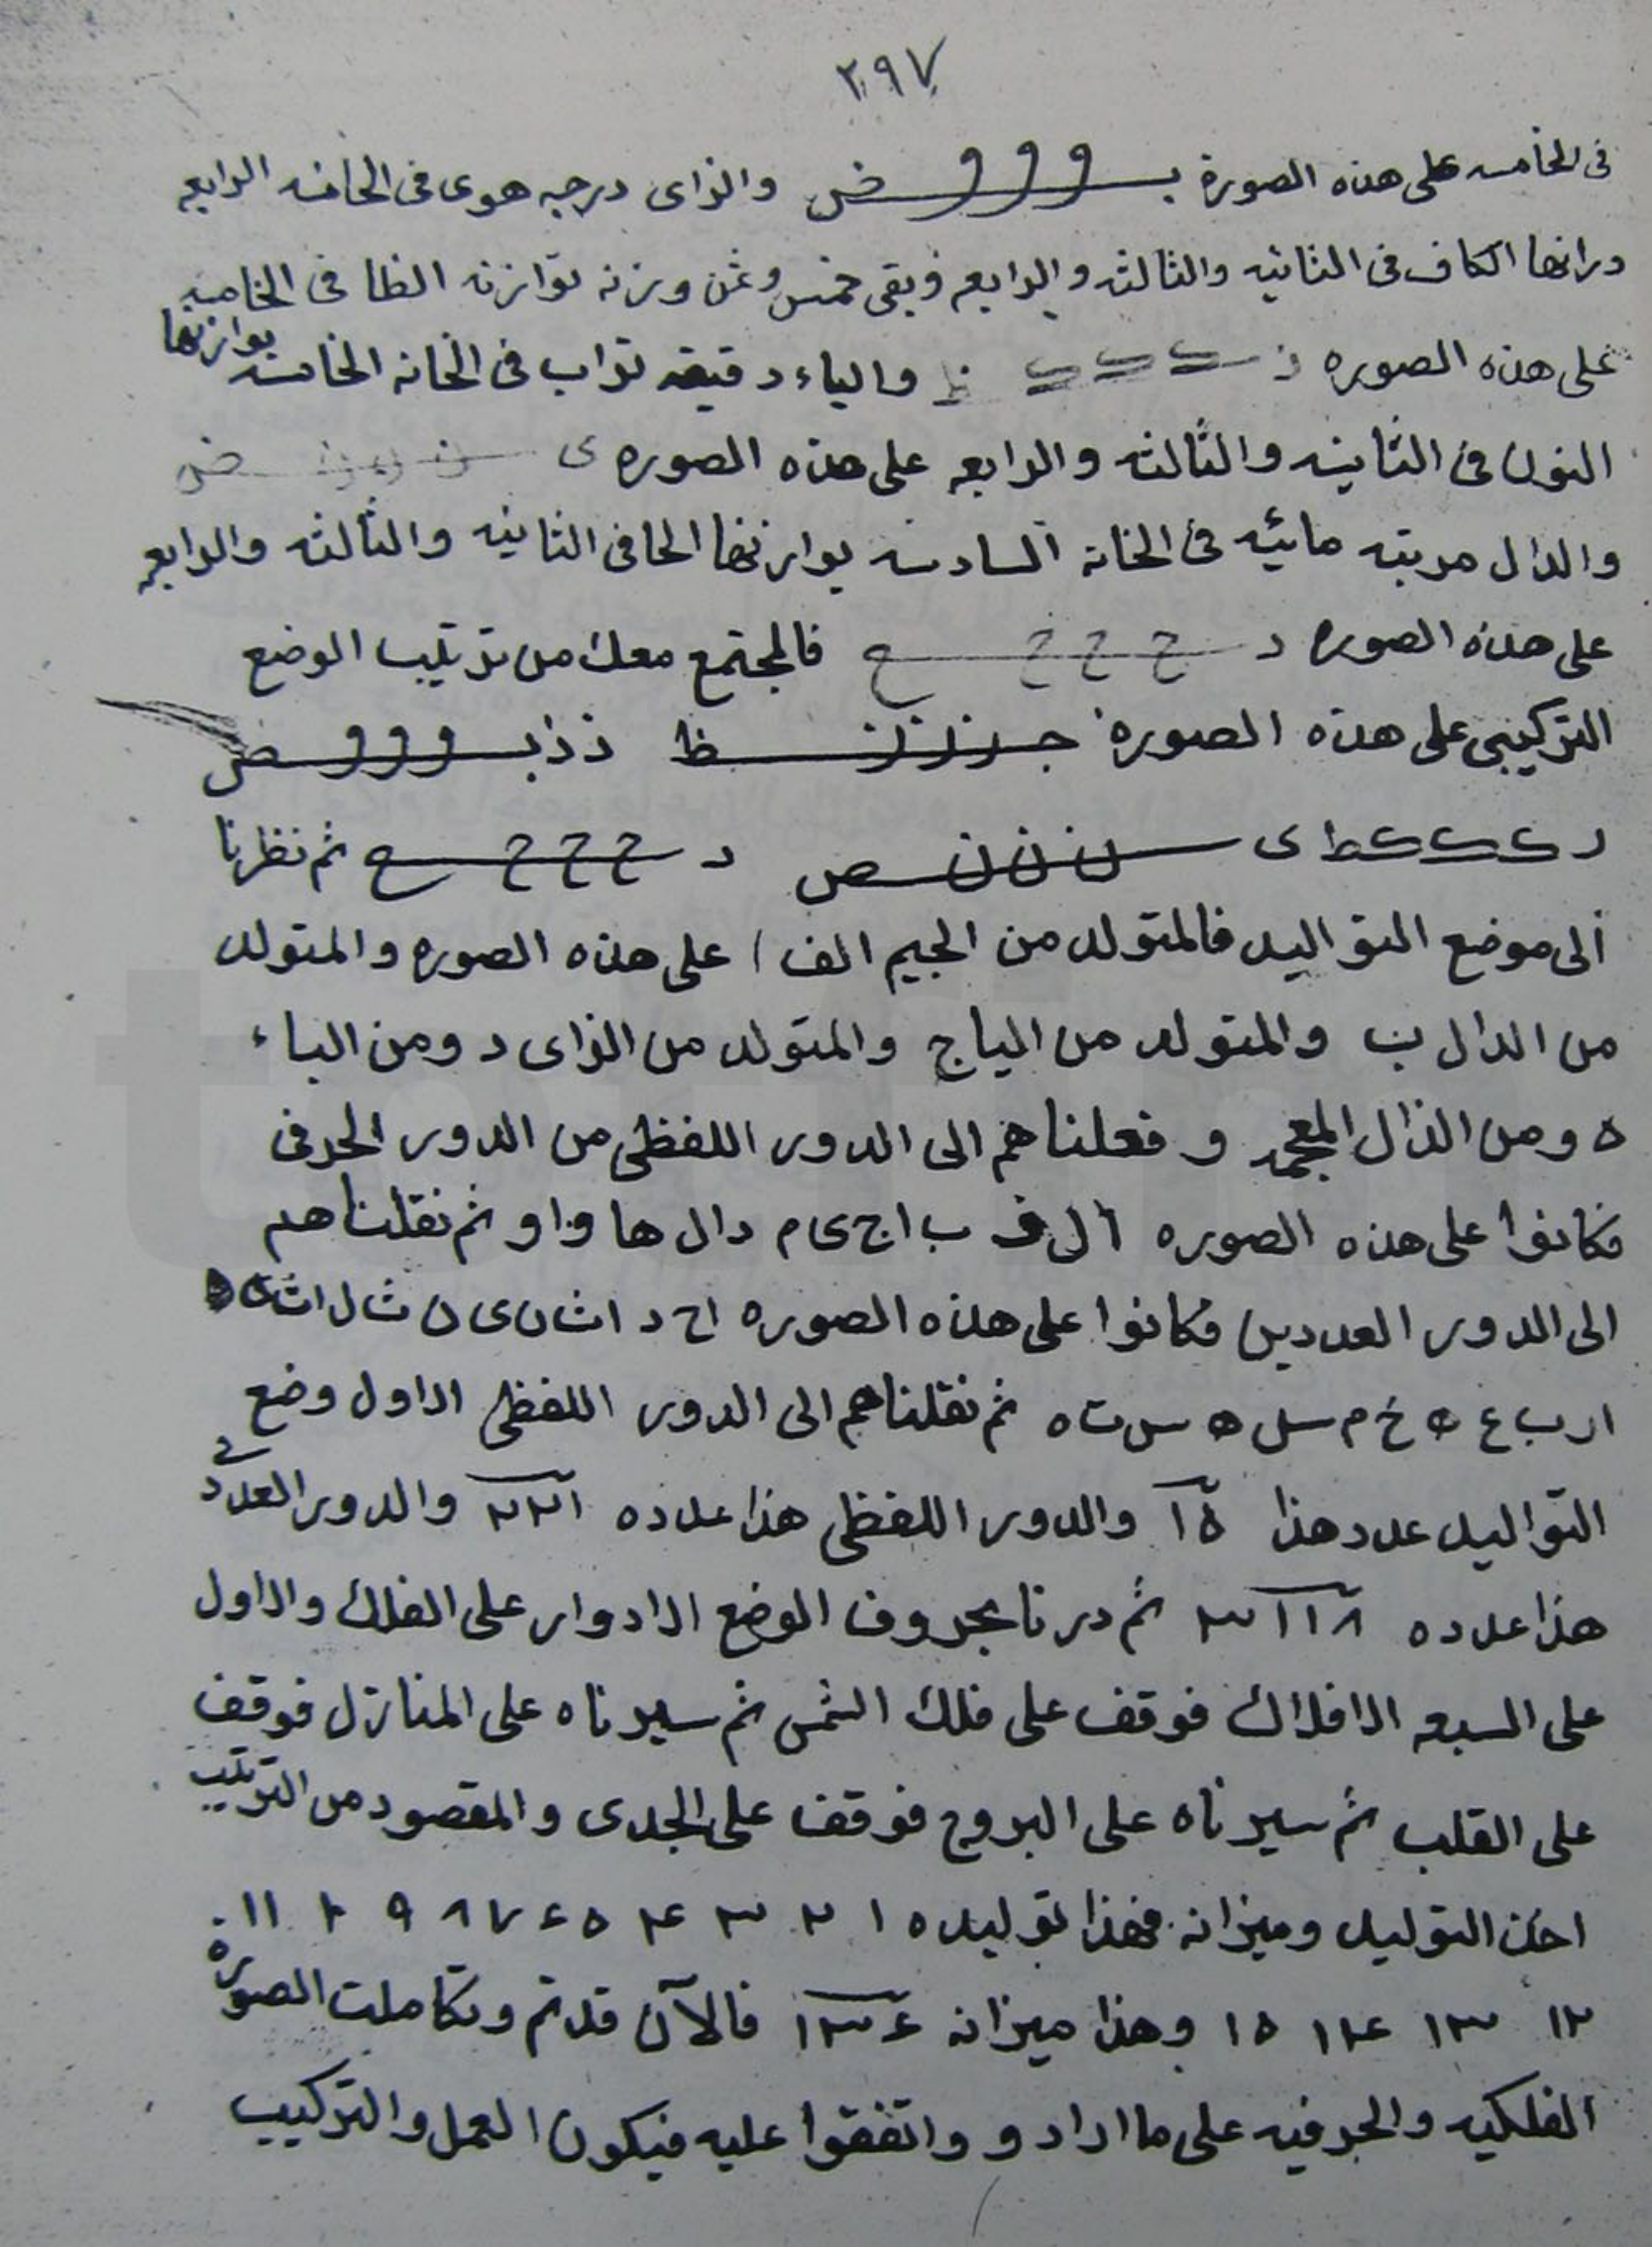 ٢٩٧
فى الخامسه على هذه الصورة بـ و و و ض والزاى درجه هوى فى الخانه الرابعه
وزانها الكاف فى الثانيه والثالثه والرابعه وبقى خمس وثمن وزنه توازنه الظا فى الخامسه
على هذه الصوره ز ك ك ك ظ والياء دقيقه تراب فى الخانه الخامسه يوازنها
النون فى الثانيه والثالثه والرابعه على هذه الصوره ى ن ن ن ض
والدال مرتبه مائيه فى الخانة السادسه يوازنها الحا فى الثانيه والثالثه والرابعه
على هذه الصوره د ح ح ح ع فالمجتمع معك من ترتيب الوضع
التركيبى على هذه الصورة جـ ز ز ز ظ ذ ذ ا بـ و و و ض
د ك ك ك ط ى ن ن ن ص د ح ح ح ع ثم نظرنا
الى موضع التواليد فالمتولد من الجيم الف ا على هذه الصوره والمتولد
من الدال ب والمتولد من الياج والمتولد من الزاى د ومن الباء
ه ومن الذال المعجمه و فعلناهم الى الدور اللفظى من الدور الحرفى
فكانوا على هذه الصوره ا ل ف ب ا ج ى م دال ها واو ثم نقلناهم
الى الدور العدديى فكانوا على هذه الصوره ا ح د ا ث ن ى ن ث ل ا ث ه
ا ر ب ع ه خ م س ه س ت ه ثم نقلناهم الى الدور اللفظى الاول وضع
التواليد عدد هذا ١٥ والدور اللفظى هذا عدده ٢٢١ والدور العددى
هذا عدده ٣١١٨ ثم درنا بحروف الوضع الادوار على الفلك والاول
على السبعه الافلاك فوقف على فلك الشمس ثم سيرناه على المنازل فوقف
على القلب ثم سيرناه على البروج فوقف على الجدى والمقصود من الترتيب
اخذ التوليد وميزانه فهذا توليده ١ ٢ ٣ ٤ ٥ ٦ ٧ ٨ ٩ ١٠ ١١
١٢ ١٣ ١٤ ١٥ وهذا ميزانه ١٣٤ فالآن قد تم وتكاملت الصورة
الفلكيه والحرفيه على ما ارادو واتفقوا عليه فيكون العمل والتركيب